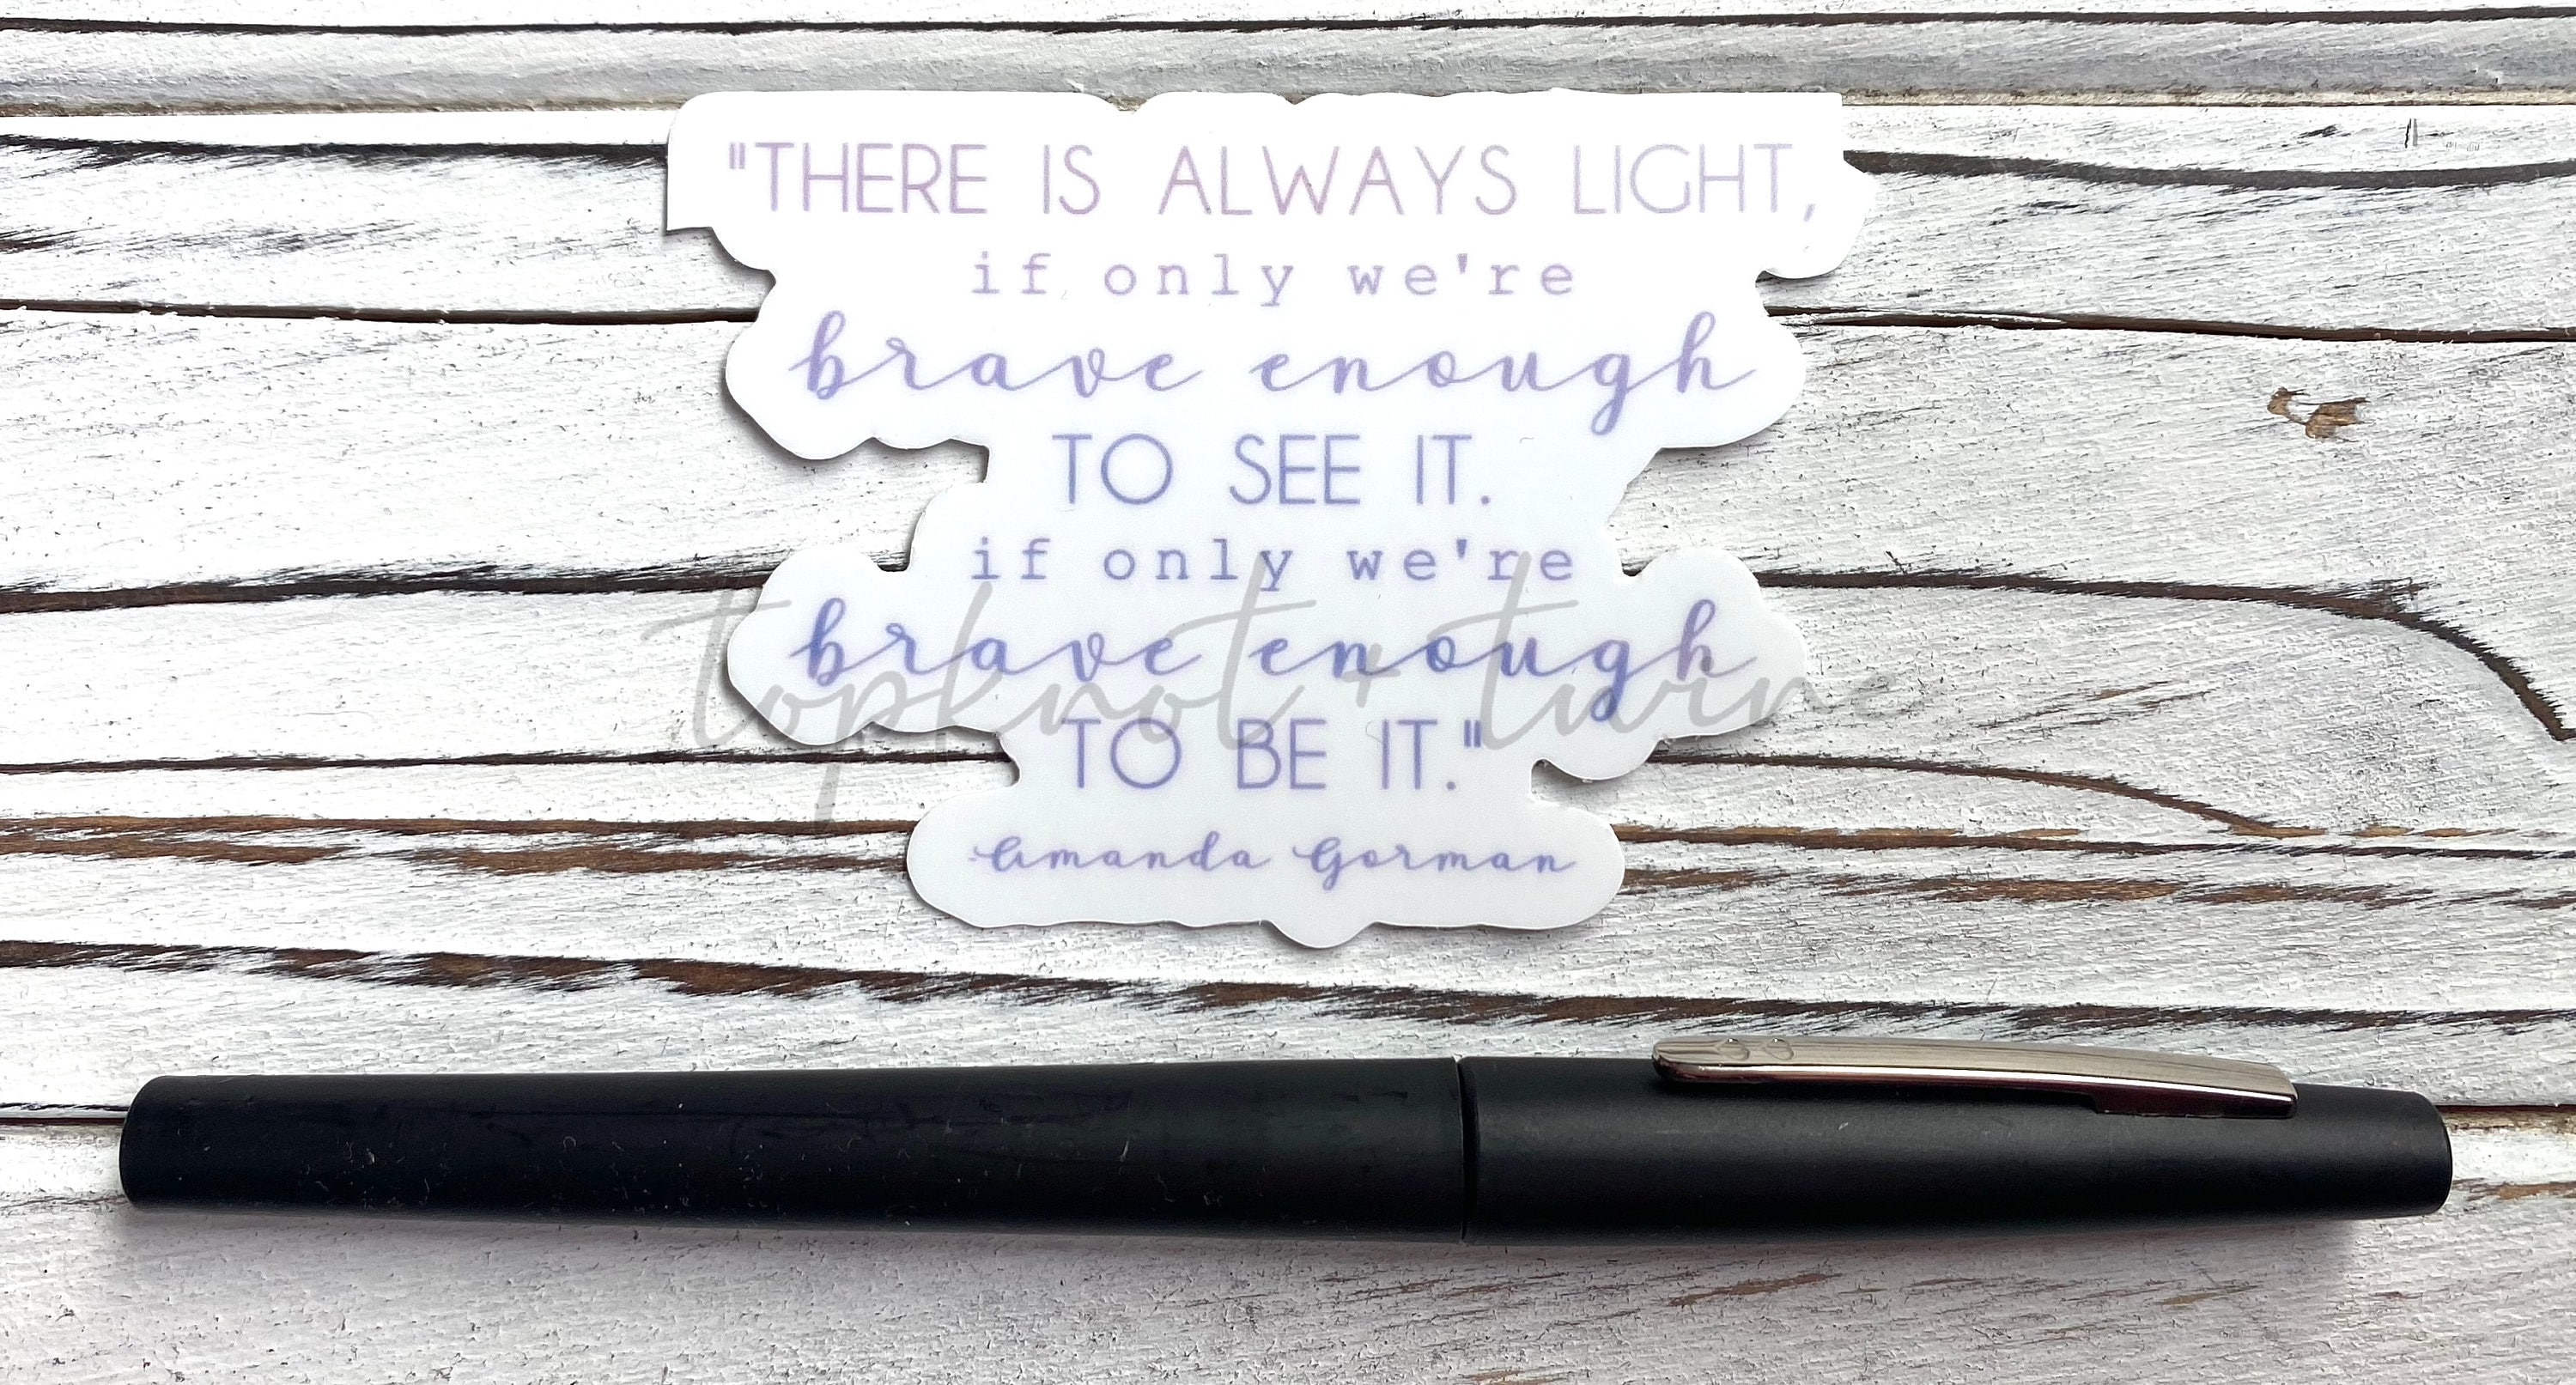 "THERE IS ALWAYS LIGHT,
if only we're
brave enough
TO SEE IT.
if only we're
brave enough
topknot + twine
TO BE IT."
Amanda Gorman